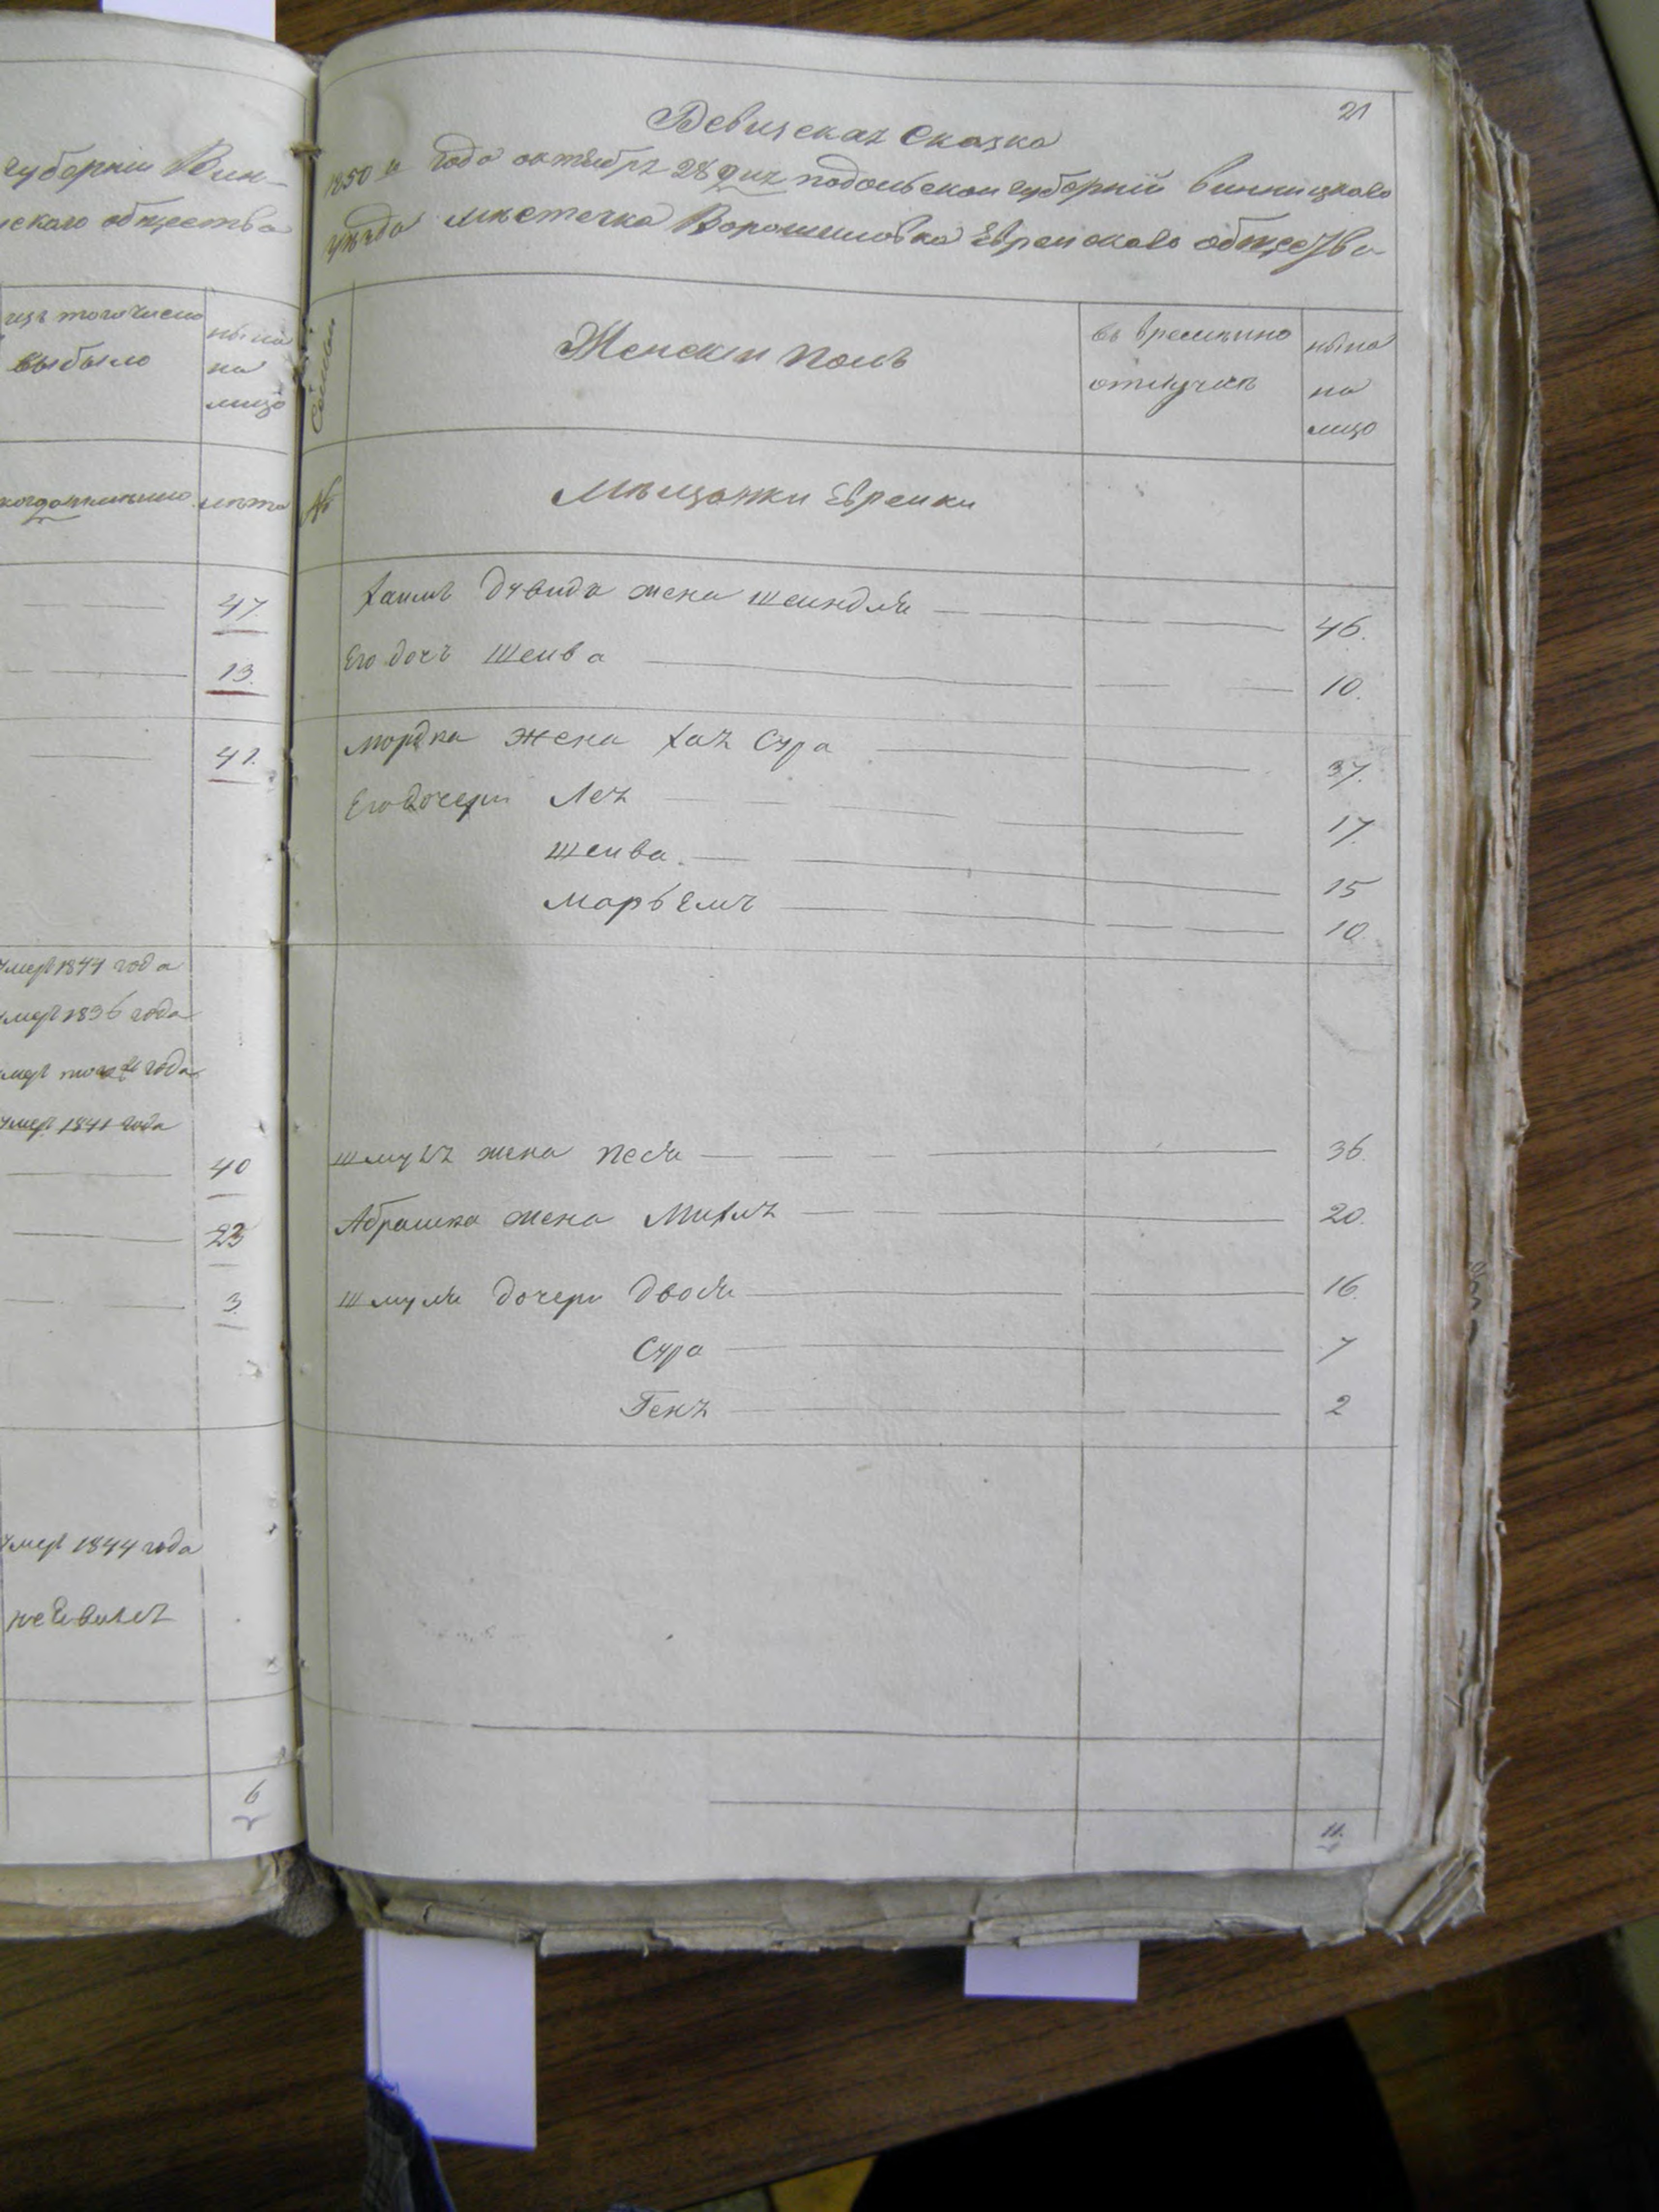 губерніи Вин-
скаго общества
изъ того числа
выбыло
ныне
на
лицо
когда именно
лета
47.
13.
41.
умеръ 1844 года
умеръ 1836 года
умеръ того ж года
умеръ 1841 года
40
23
3.
умеръ 1844 года
не Евился
6
21
Ревизская Сказка
1850 го года октября 28 дня подольской губерній винницкаго
уезда местечка Ворошиловка Еврейскаго общества
Семьи
Женски полъ
въ временно
отлучке
ныне
на
лицо
№
Мещанки Еврейки
Хаимъ Дувида жена шеиндля 46.
Его дочъ Шеива 10.
Мордка жена хая Сура 37.
Его дочери Лея 17.
Шеива. 15
Марьемъ 10.
Шмуля жена песя 36.
Абрашка жена Михля 20.
Шмуля дочери двося 16.
Сура 7
Геня 2
11.